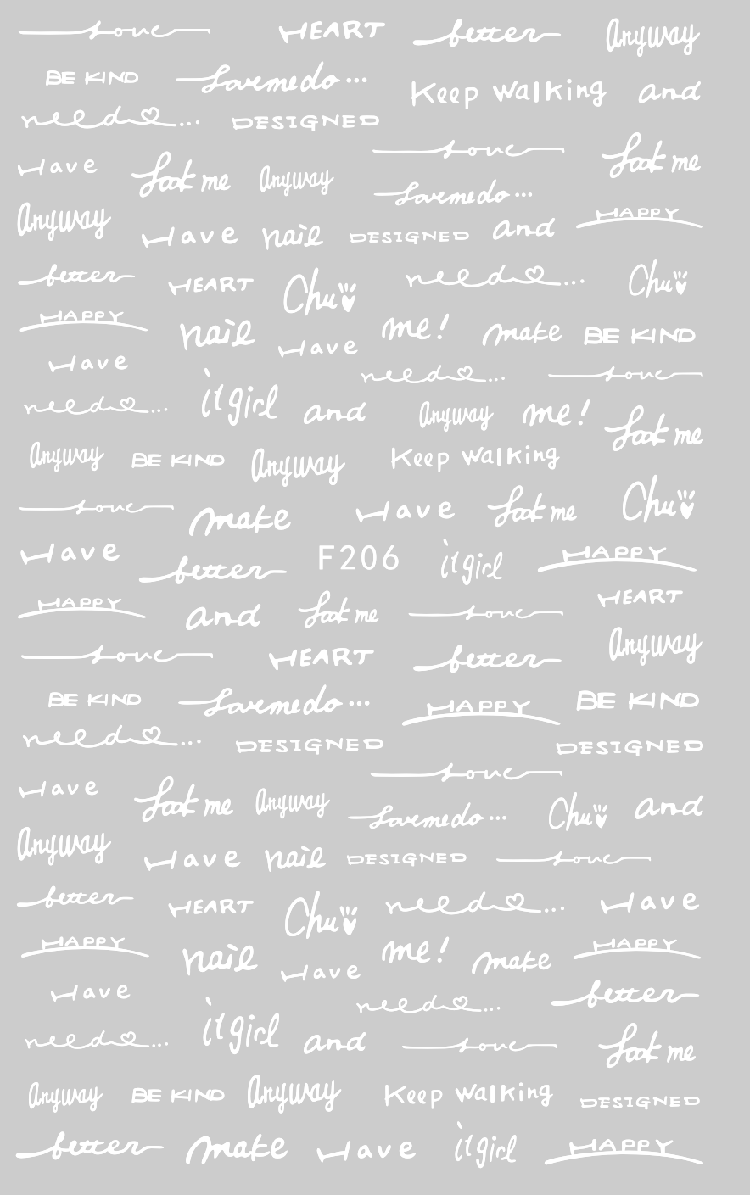 love HEART better Anyway
BE KIND Love me do ... Keep walking and
need ... DESIGNED
Have Look me Anyway love Look me
Love me do ...
Anyway Have nail DESIGNED and HAPPY
better HEART Chu need ... Chu
HAPPY nail Have me! make BE KIND
Have need ... love
need ... it girl and Anyway me! Look me
Anyway BE KIND Anyway Keep walking
love make Have Look me Chu
Have better F206 it girl HAPPY
HAPPY and Look me love HEART
love HEART better Anyway
BE KIND Love me do ... HAPPY BE KIND
need ... DESIGNED DESIGNED
love
Have Look me Anyway Love me do ... Chu and
Anyway Have nail DESIGNED love
better HEART Chu need ... Have
HAPPY nail Have me! make HAPPY
Have need ... better
need ... it girl and love Look me
Anyway BE KIND Anyway Keep walking DESIGNED
better make Have it girl HAPPY